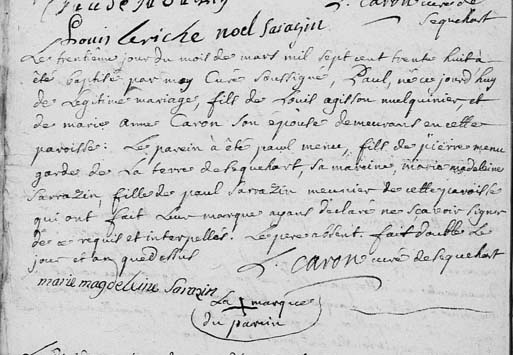 L. Caron curé de
Sequehart
Louis leriche noel Sarazin
Le trentième jour du mois de mars mil sept cent trente huit à
été baptisé par moy Curé soussigné, Paul, né ce jourd'huy
de legitime mariage, fils de Louis agisson mulquinier et
de marie Anne Caron son epouse demeurans en cette
paroisse: Le parein à été paul menu, fils de pierre menu
garde de La terre de Sequehart, sa mareine, maria madeleine
Sarrazin, fille de paul Sarrazin meunier de cette paroisse
qui ont fait Leur marque ayans déclaré ne sçavoir signer
de ce requis et interpellés. Le pere absent. fait double Le
jour et an que dessus
L. Caron curé de Sequehart
marie magdeleine Sarazin
La marque
du parein